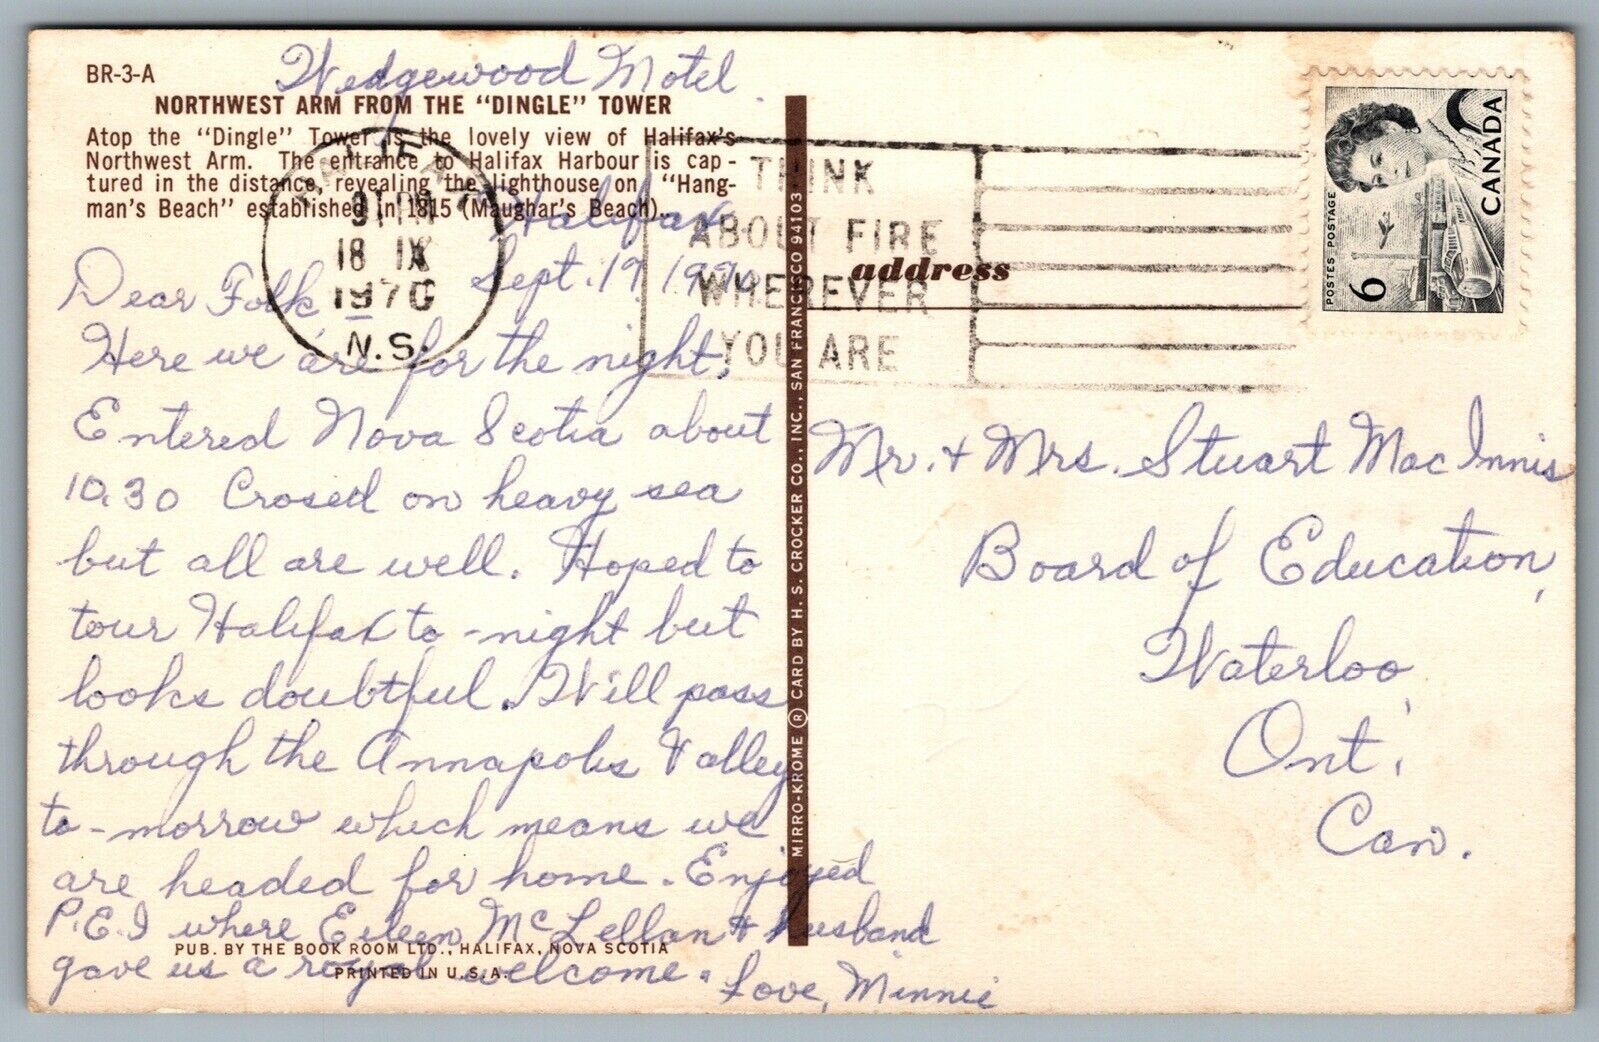 Wedgewood Motel
BR-3-A
NORTHWEST ARM FROM THE "DINGLE" TOWER
Atop the "Dingle" Tower is the lovely view of Halifax's
Northwest Arm. The entrance to Halifax Harbour is cap-
tured in the distance, revealing the lighthouse on "Hang-
man's Beach" established in 1815 (Maughar's Beach).
Halifax
Sept. 17
Dear Folk
Here we are for the night.
Entered Nova Scotia about
10.30 Crosed on heavy sea
but all are well. Hoped to
tour Halifax to-night but
looks doubtful. Will pass
through the Annapolis Valley
to-morrow which means we
are headed for home. Enjoyed
P.E.I where Eileen McLellan + husband
gave us a royal welcome.
Love, Minnie
PUB. BY THE BOOK ROOM LTD., HALIFAX, NOVA SCOTIA
PRINTED IN U.S.A.
PM
18 IX
1970
N.S.
THINK
ABOUT FIRE
WHEREVER
YOU ARE
address
MIRRO-KROME ® CARD BY H. S. CROCKER CO., INC., SAN FRANCISCO 94103
POSTES POSTAGE
6
CANADA
Mr. + Mrs. Stuart MacInnis
Board of Education,
Waterloo,
Ont.
Can.